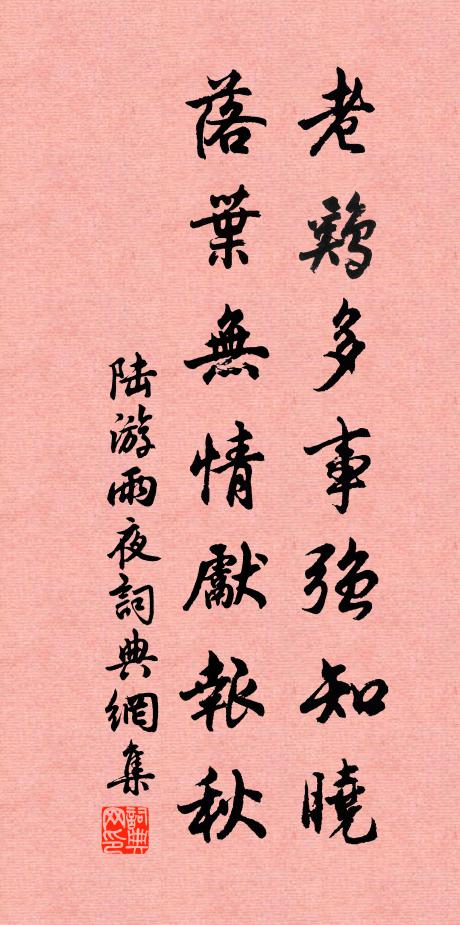 老鷄多事強知曉
落葉無情獻報秋
陸游雨夜詞典網集
詞典网印